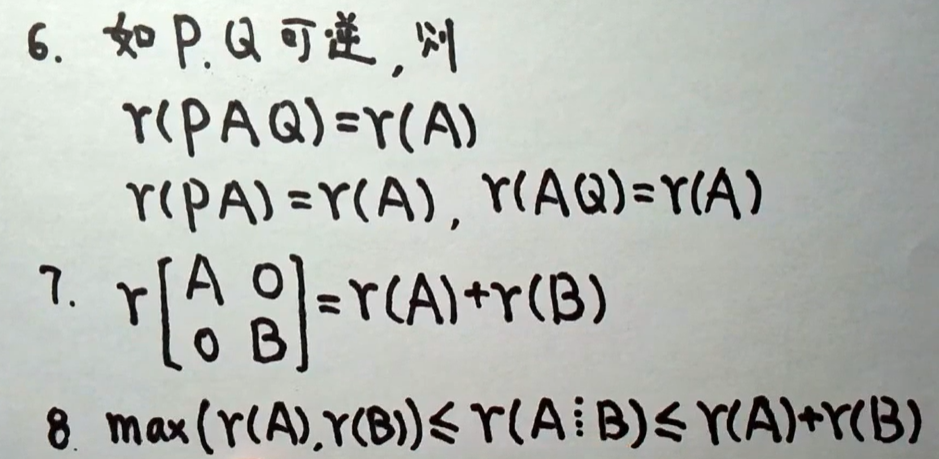 6. 如P.Q可逆,则
r(PAQ)=r(A)
r(PA)=r(A), r(AQ)=r(A)
7. r[A 0
0 B]=r(A)+r(B)
8. max(r(A),r(B))≤r(A⋮B)≤r(A)+r(B)